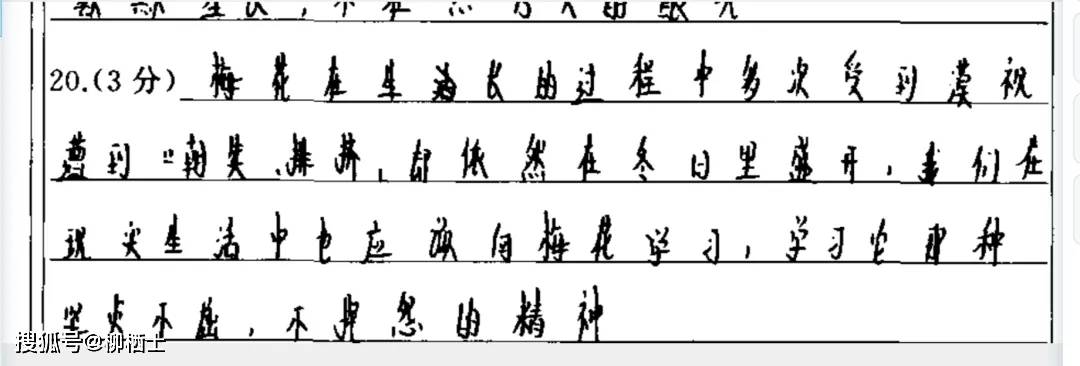 20.(3分) 梅花在生长的过程中多次受到漠视
遭到嘲笑、排挤,却依然在冬日里盛开,我们在
现实生活中也应该向梅花学习,学习它那种
坚贞不屈,不畏怨的精神
搜狐号@柳栖士